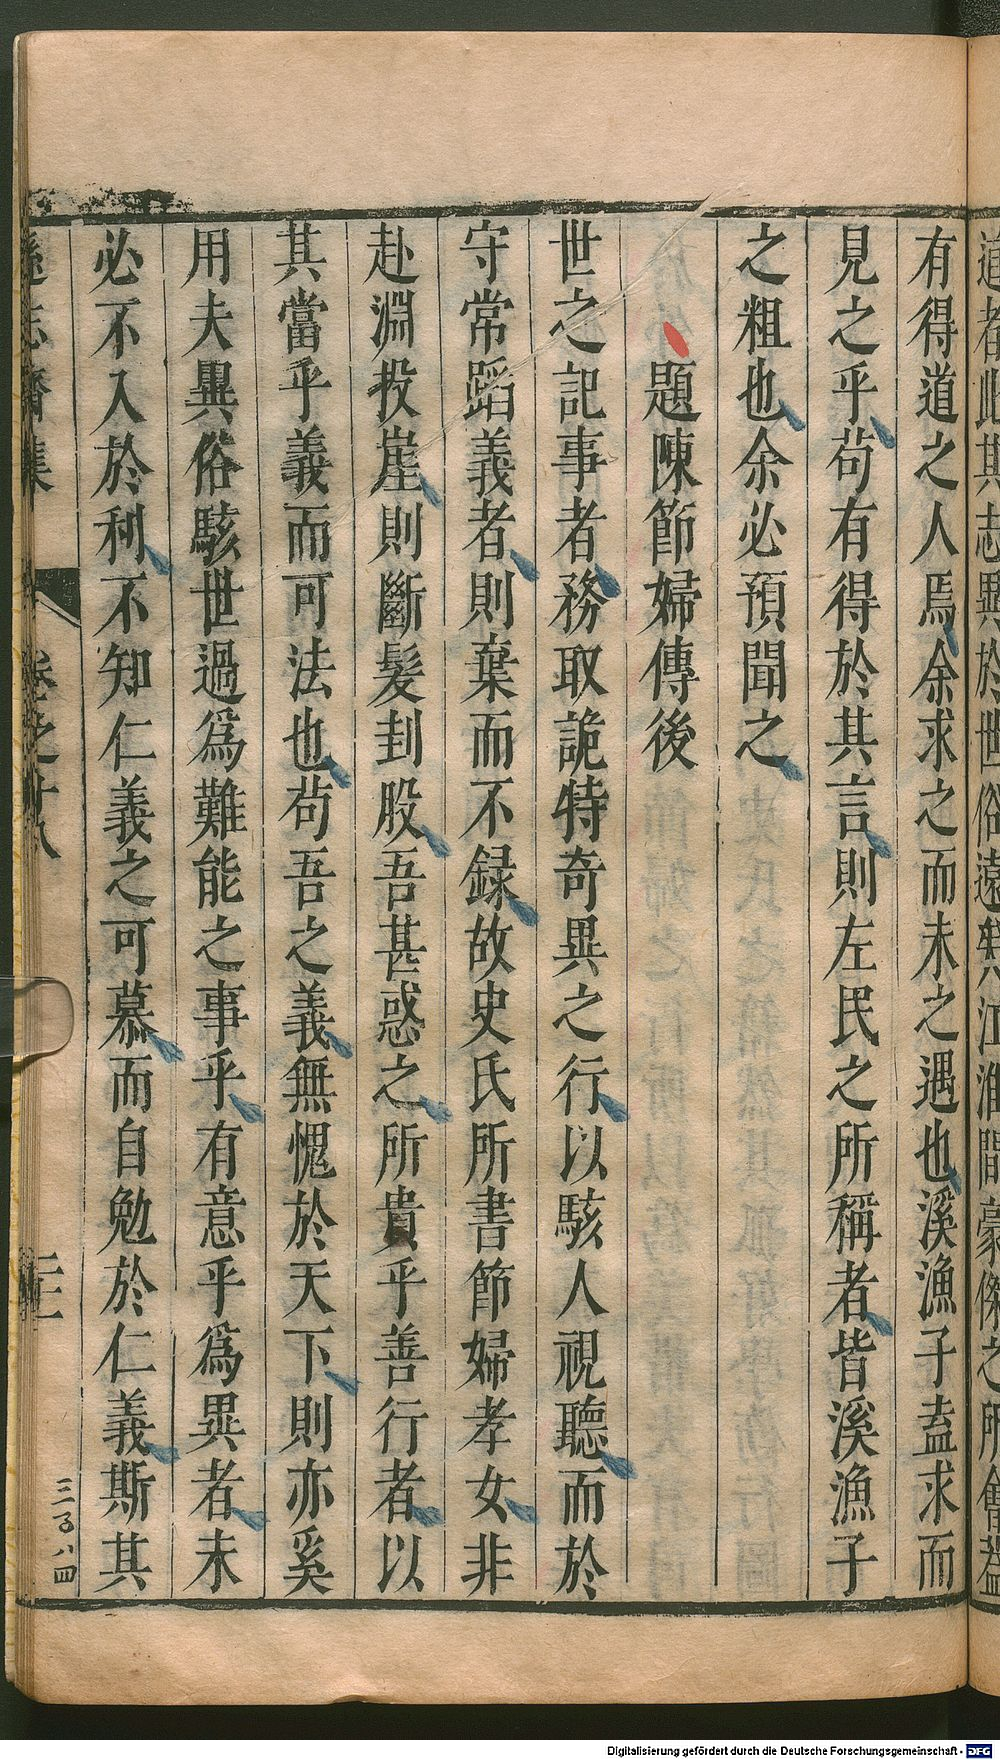 道者此其志異於世俗遠矣江淮間豪傑之所會蓋
有得道之人焉余求之而未之遇也溪漁子盍求而
見之乎苟有得於其言則左民之所稱者皆溪漁子
之粗也余必預聞之
題陳節婦傳後
世之記事者務取詭特奇異之行以駭人視聽而於
守常蹈義者則棄而不録故史氏所書節婦孝女非
赴淵投崖則斷髮刲股吾甚惑之所貴乎善行者以
其當乎義而可法也苟吾之義無愧於天下則亦奚
用夫異俗駭世過為難能之事乎有意乎為異者未
必不入於利不知仁義之可慕而自勉於仁義斯其
遜志齋集 卷之十八 二十三
三百八四
Digitalisierung gefördert durch die Deutsche Forschungsgemeinschaft - DFG